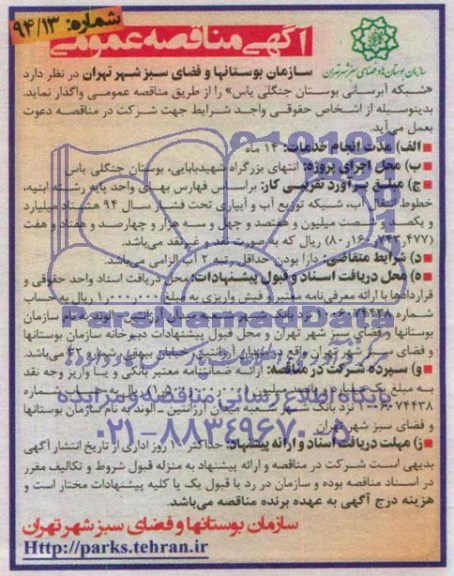 شماره: ۹۴/۱۳
آگهی مناقصه عمومی
سازمان بوستانها و فضای سبز شهر تهران
سازمان بوستانها و فضای سبز شهر تهران در نظر دارد
«شبکه آبرسانی بوستان جنگلی یاس» را از طریق مناقصه عمومی واگذار نماید.
بدینوسیله از اشخاص حقوقی واجد شرایط جهت شرکت در مناقصه دعوت
بعمل می‌آید.
الف) مدت انجام خدمات: ۱۴ ماه
ب) محل اجرای پروژه: انتهای بزرگراه شهیدبابایی، بوستان جنگلی یاس
ج) مبلغ برآورد تقریبی کار: براساس فهارس بهای واحد پایه رشته ابنیه،
خطوط انتقال آب، شبکه توزیع آب و آبیاری تحت فشار سال ۹۴ هشتاد میلیارد
و یکصد و شصت میلیون و هفتصد و چهل و سه هزار و چهارصد و هفتاد و هفت
(۸۰٫۱۶۰٫۷۴۳٫۴۷۷) ریال که به صورت نقد و غیرنقد می‌باشد.
د) شرایط متقاضی: دارا بودن حداقل رتبه ۲ آب الزامی می‌باشد.
ه) محل دریافت اسناد و قبول پیشنهادات: محل دریافت اسناد واحد حقوقی و
قراردادها با ارائه معرفی‌نامه معتبر و فیش واریزی به مبلغ ۱٫۰۰۰٫۰۰۰ ریال به حساب
شماره ۱۰۰۶۰۷۴۴۳۸ نزد بانک شهر شعبه میدان آرژانتین - الوند به نام سازمان
بوستانها و فضای سبز شهر تهران و محل قبول پیشنهادات دبیرخانه سازمان بوستانها
و فضای سبز شهر تهران واقع در میدان آرژانتین خیابان بیهقی شماره ۴۲ می‌باشد.
و) سپرده شرکت در مناقصه: ارائه ضمانتنامه معتبر بانکی و یا واریز وجه نقد
به مبلغ یک میلیارد و پانصد میلیون ریال به حساب شماره
۱۰۰۶۰۷۴۴۳۸ نزد بانک شهر شعبه میدان آرژانتین - الوند به نام سازمان بوستانها
و فضای سبز شهر تهران
ز) مهلت دریافت اسناد و ارائه پیشنهاد: حداکثر ۱۰ روز اداری از تاریخ انتشار آگهی
بدیهی است شرکت در مناقصه و ارائه پیشنهاد به منزله قبول شروط و تکالیف مقرر
در اسناد مناقصه بوده و سازمان در رد یا قبول یک یا کلیه پیشنهادات مختار است و
هزینه درج آگهی به عهده برنده مناقصه می‌باشد.
سازمان بوستانها و فضای سبز شهر تهران
Http://parks.tehran.ir
ParsNamadData
پایگاه اطلاع رسانی مناقصه و مزایده
۰۲۱-۸۸۳۴۹۶۷۰-۵